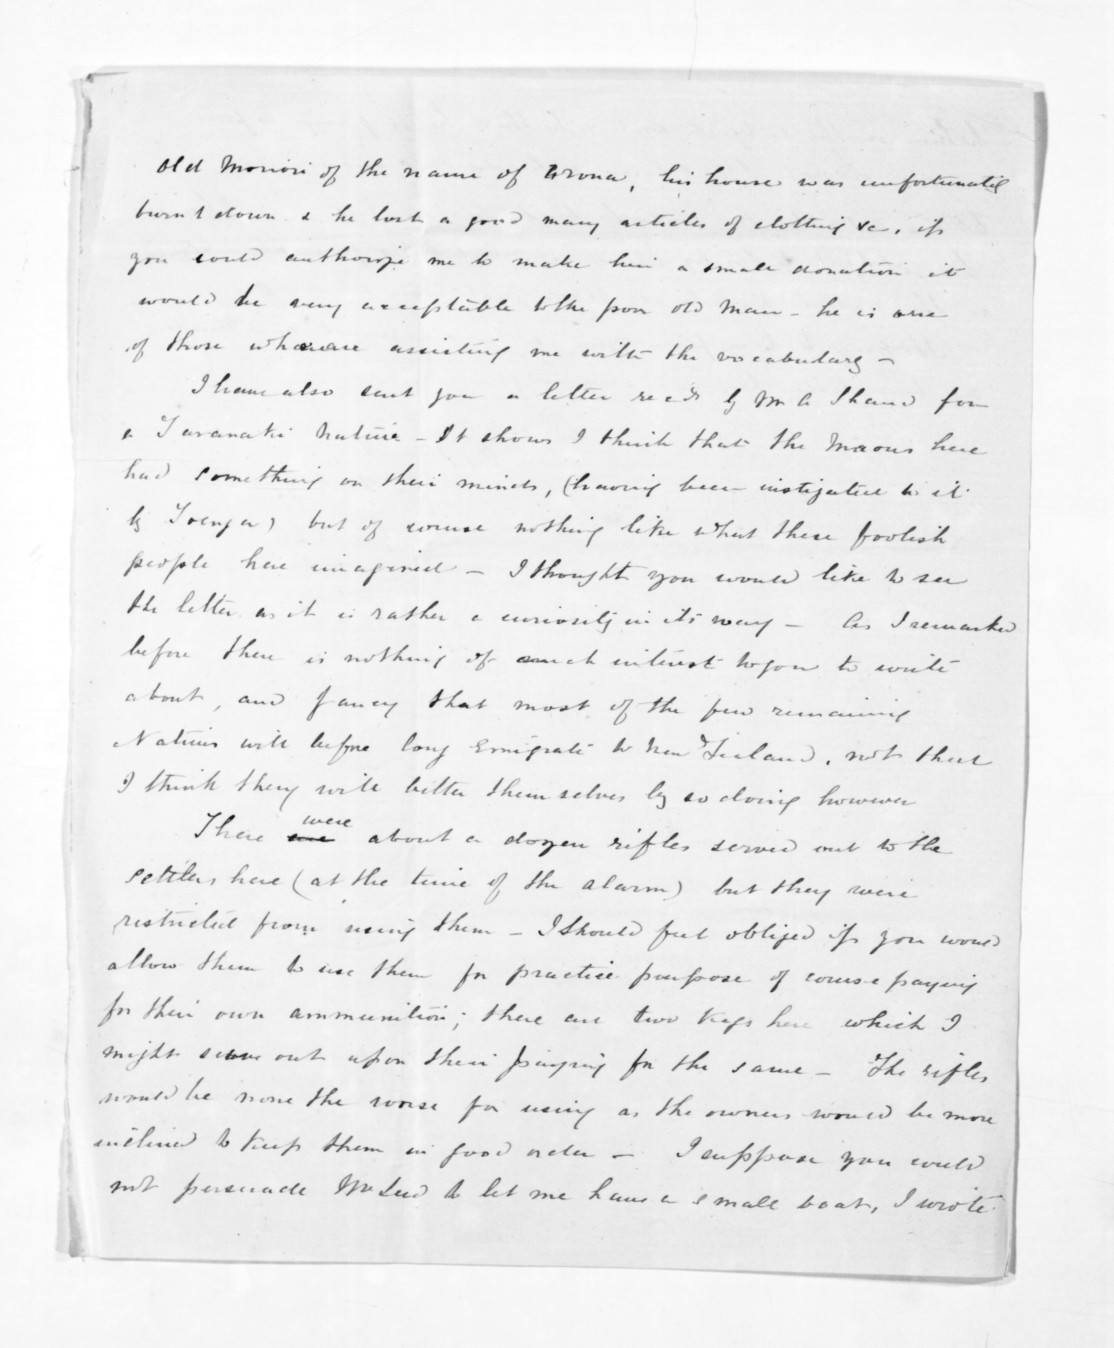 old Moriori of the name of Arona, his house was unfortunately
burnt down & he lost a good many articles of clothing &c, if
you could authorize me to make him a small donation it
would be very acceptable to the poor old man - he is one
of those who are assisting me with the vocabulary -
I have also sent you a letter recd by Mr A Shand from
a Taranaki Native - It shows I think that the Maoris here
had something on their minds, (having been instigated to it
by Toenga) but of course nothing like what these foolish
people here imagined - I thought you would like to see
the letter as it is rather a curiosity in its way - As I remarked
before there is nothing of much interest to you to write
about, and fancy that most of the few remaining
Natives will before long Emigrate to New Zealand, not that
I think they will better themselves by so doing however
There were about a dozen rifles served out to the
settlers here (at the time of the alarm) but they were
restricted from using them - I should feel obliged if you would
allow them to use them for practice purpose of course paying
for their own ammunition; there are two kegs here which I
might serve out upon their paying for the same - The rifles
would be none the worse for using as the owners would be more
inclined to keep them in good order - I suppose you could
not persuade Mr Seed to let me have a small boat, I wrote